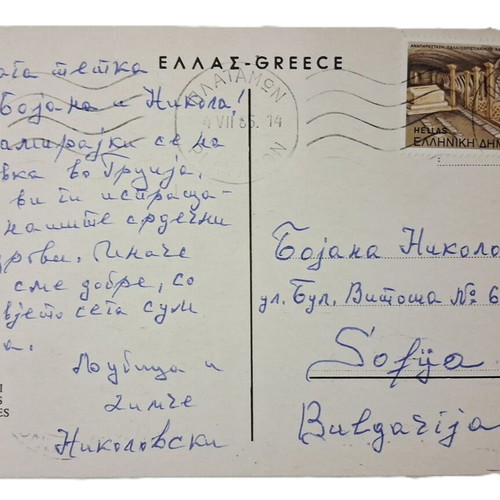 ΕΛΛΑΣ-GREECE
ΠΛΑΤΑΜΩΝ
4 VII 85. 14
HELLAS
ΕΛΛΗΝΙΚΗ ΔΗΜ
тетка
Бојана и Никола!
се на
во Грција,
ви ги испраща-
нашите срдечни
Иначе
сме добре, со
сета сум
Љубица и
Димче
Николовски
Бојана Никол
ул. Бул. Витоша № 6
Sofija
Bulgarija